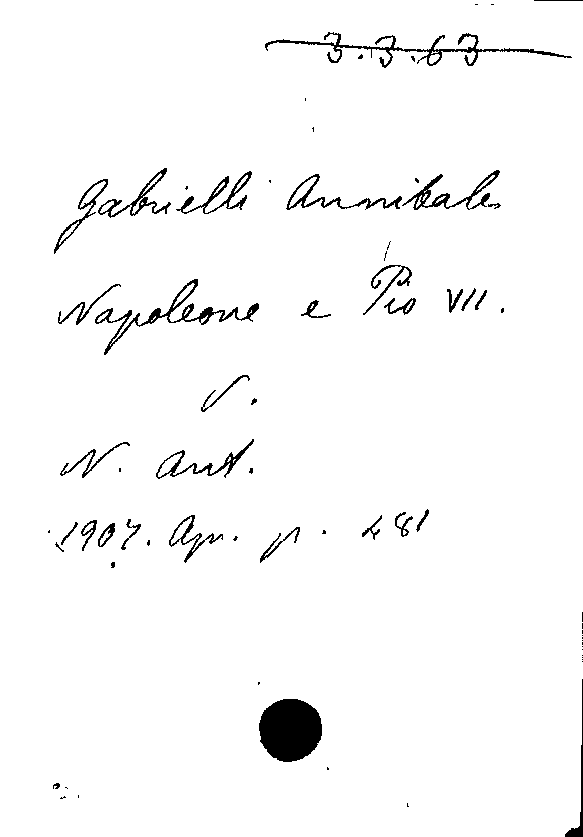 3.3.63
Gabrielli Annibale
Napoleone e Pio VII.
V.
N. Ant.
1907. Apr. p. 481